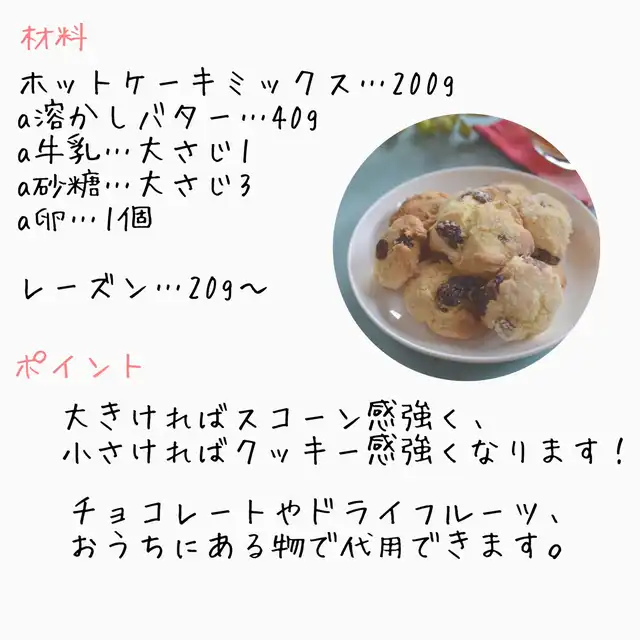 材料
ホットケーキミックス…200g
a溶かしバター…40g
a牛乳…大さじ1
a砂糖…大さじ3
a卵…1個
レーズン…20g〜
ポイント
大きければスコーン感強く、
小さければクッキー感強くなります！
チョコレートやドライフルーツ、
おうちにある物で代用できます。